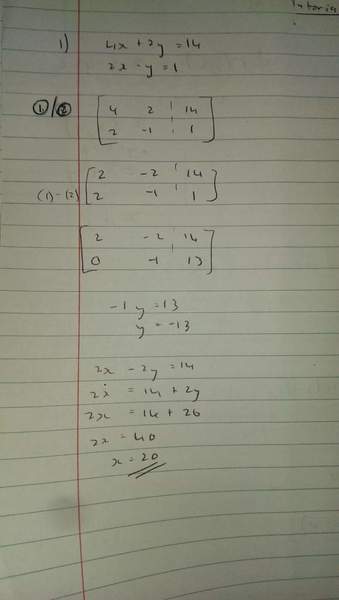 Tutoria
1) 4x + 2y = 14
2x - y = 1
①/② [ 4 2 | 14
2 -1 | 1 ]
[ 2 -2 | 14
(1)-(2) 2 -1 | 1 ]
[ 2 -2 | 14
0 -1 13 ]
-1y = 13
y = -13
2x - 2y = 14
2x = 14 + 2y
2x = 14 + 26
2x = 40
x = 20